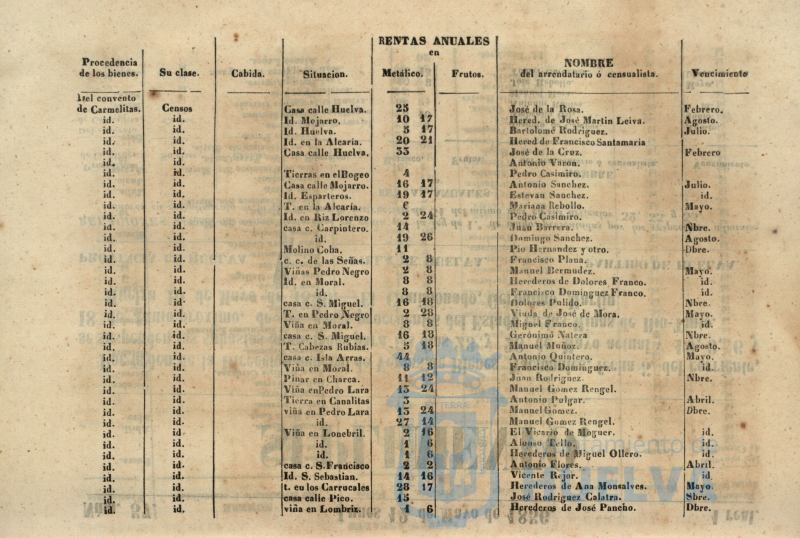 RENTAS ANUALES
en
Procedencia de los bienes. Su clase. Cabida. Situacion. Metálico. Frutos. NOMBRE del arrendatario ó censualista. Vencimiento
Del convento
de Carmelitas. Censos Casa calle Huelva. 25 José de la Rosa. Febrero.
id. id. Id. Mojarro. 10 17 Hered. de José Martin Leiva. Agosto.
id. id. Id. Huelva. 5 17 Bartolomé Rodriguez. Julio.
id. id. Id. en la Alcaria. 20 21 Hered de Francisco Santamaria
id. id. Casa calle Huelva. 33 José de la Cruz. Febrero
id. id. Antonio Varon.
id. id. Tierras en el Bogeo 4 Pedro Casimiro.
id. id. Casa calle Mojarro. 16 17 Antonio Sanchez. Julio.
id. id. Id. Esparteros. 19 17 Estevan Sanchez. id.
id. id. T. en la Alcaria. 6 Mariana Rebollo. Mayo.
id. id. Id. en Riz Lorenzo 2 24 Pedro Casimiro.
id. id. casa c. Carpintero. 14 Juan Barrera. Nbre.
id. id. id. 19 26 Domingo Sanchez. Agosto.
id. id. Molino Coba. 11 Pio Hernandez y otro. Dbre.
id. id. c. c. de las Señas. 2 8 Francisco Plana.
id. id. Viñas Pedro Negro 2 8 Manuel Bermudez. Mayo.
id. id. Id. en Moral. 8 8 Herederos de Dolores Franco. id.
id. id. id. 8 8 Francisco Dominguez Franco. id.
id. id. casa c. S. Miguel. 16 18 Dolores Pulido. Nbre.
id. id. T. en Pedro Negro 2 28 Viuda de José de Mora. Mayo.
id. id. Viña en Moral. 8 8 Miguel Franco. id.
id. id. casa c. S. Miguel. 16 18 Gerónimo Natera Nbre.
id. id. T. Cabezas Rubias. 5 18 Manuel Muñoz. Agosto.
id. id. casa c. Isla Arras. 44 Antonio Quintero. Mayo.
id. id. Viña en Moral. 8 8 Francisco Dominguez. id.
id. id. Pinar en Charca. 11 12 Juan Rodriguez. Nbre.
id. id. Viña en Pedro Lara 13 24 Manuel Gomez Rengel.
id. id. Tierra en Canalitas 3 Antonio Pulgar. Abril.
id. id. viña en Pedro Lara 13 24 Manuel Gomez. Dbre.
id. id. id. 27 14 Manuel Gomez Rengel.
id. id. Viña en Lonebril. 2 16 El Vicario de Moguer. id.
id. id. id. 1 6 Alonso Tello. id.
id. id. id. 1 6 Herederos de Miguel Ollero. id.
id. id. casa c. S. Francisco 2 2 Antonio Flores. Abril.
id. id. Id. S. Sebastian. 14 16 Vicente Rejor. id.
id. id. t. en los Carrucales 26 17 Herederos de Ana Monsalves. Mayo.
id. id. casa calle Pico. 15 José Rodriguez Calatra. Sbre.
id. id. viña en Lombriz. 1 6 Herederos de José Pancho. Dbre.